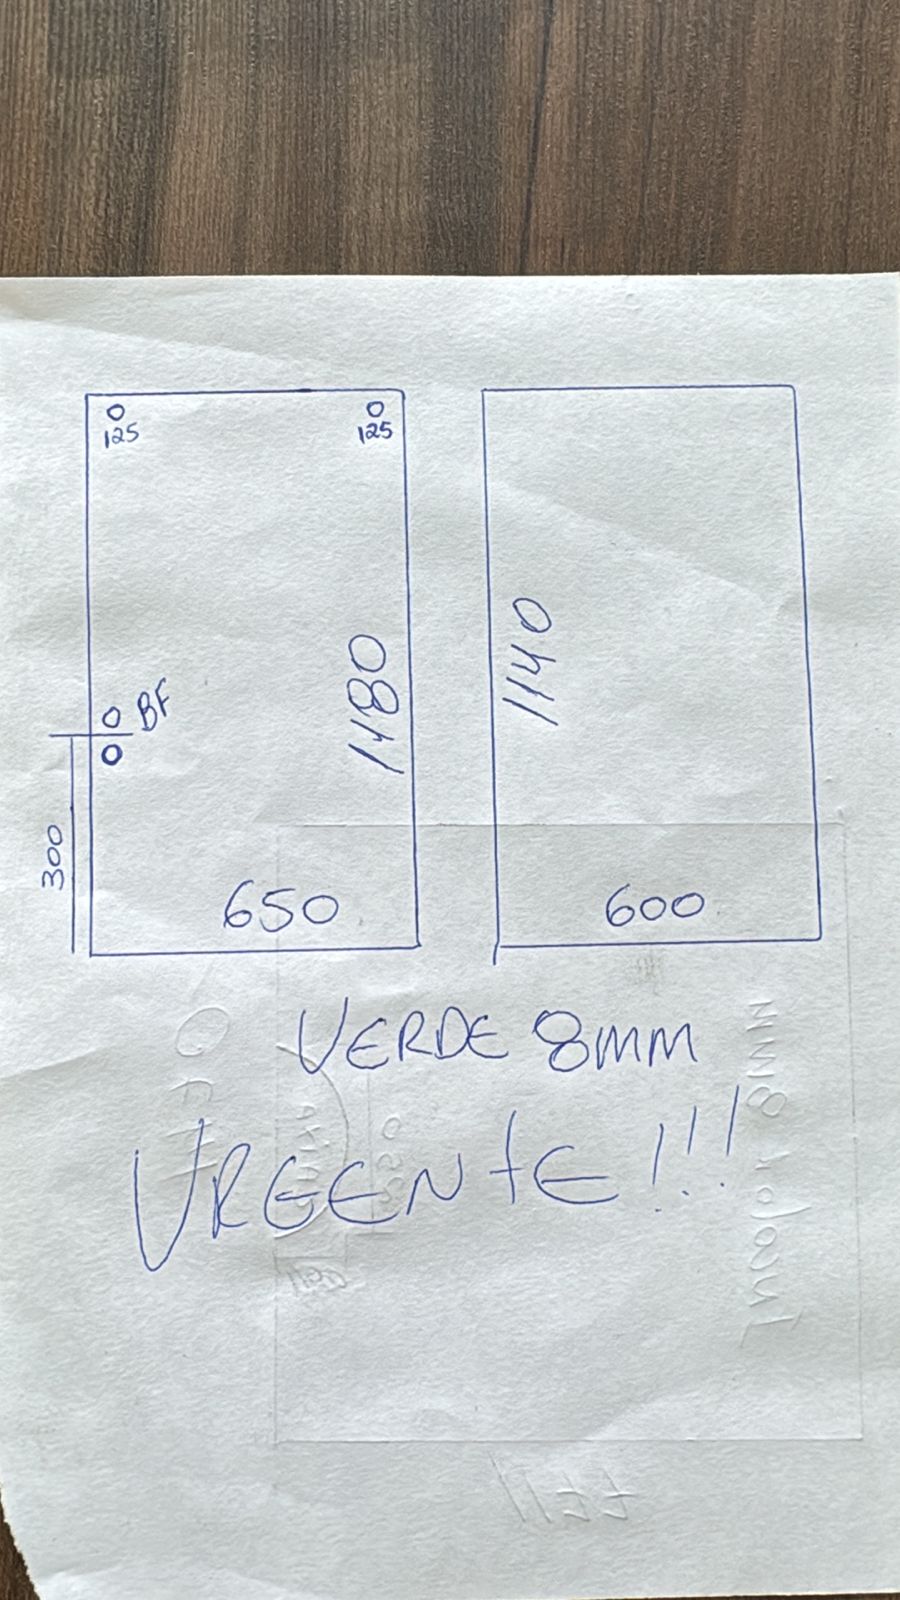 125
125
1180
BF
300
650
1140
600
VERDE 8MM
URGENTE!!!